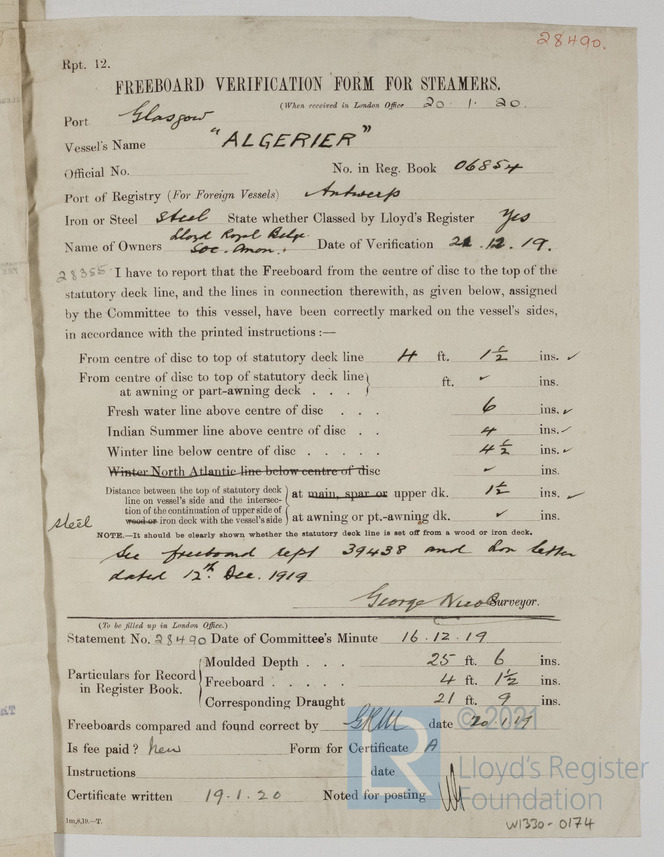 28490.
Rpt. 12.
FREEBOARD VERIFICATION FORM FOR STEAMERS.
(When received in London Office 20. 1. 20.
Port Glasgow
Vessel's Name "ALGERIER"
Official No. No. in Reg. Book 06854
Port of Registry (For Foreign Vessels) Antwerp
Iron or Steel Steel State whether Classed by Lloyd's Register Yes
Name of Owners Lloyd Royal Belge Soc. Anon. Date of Verification 21.12.19.
28355 I have to report that the Freeboard from the centre of disc to the top of the
statutory deck line, and the lines in connection therewith, as given below, assigned
by the Committee to this vessel, have been correctly marked on the vessel's sides,
in accordance with the printed instructions :—
From centre of disc to top of statutory deck line 4 ft. 1½ ins. ✓
From centre of disc to top of statutory deck line
at awning or part-awning deck . . . ft. ✓ ins.
Fresh water line above centre of disc . . . 6 ins. ✓
Indian Summer line above centre of disc . . 4 ins. ✓
Winter line below centre of disc . . . . . 4½ ins. ✓
Winter North Atlantic line below centre of disc ✓ ins.
Distance between the top of statutory deck
line on vessel's side and the intersec-
tion of the continuation of upper side of
wood or iron deck with the vessel's side
at main, spar or upper dk. 1½ ins. ✓
at awning or pt.-awning dk. ✓ ins.
steel
NOTE.—It should be clearly shown whether the statutory deck line is set off from a wood or iron deck.
See freeboard rept 39438 and Lon letter
dated 12th Dec. 1919
George Surveyor.
(To be filled up in London Office.)
Statement No. 28490 Date of Committee's Minute 16.12.19
Particulars for Record
in Register Book.
Moulded Depth . . . 25 ft. 6 ins.
Freeboard . . . . . 4 ft. 1½ ins.
Corresponding Draught 21 ft. 9 ins.
Freeboards compared and found correct by date
Is fee paid? New Form for Certificate A
Instructions date
Certificate written 19.1.20 Noted for posting
1m,8,19.—T.
© 2021
LR
Lloyd's Register
Foundation
W1330-0174